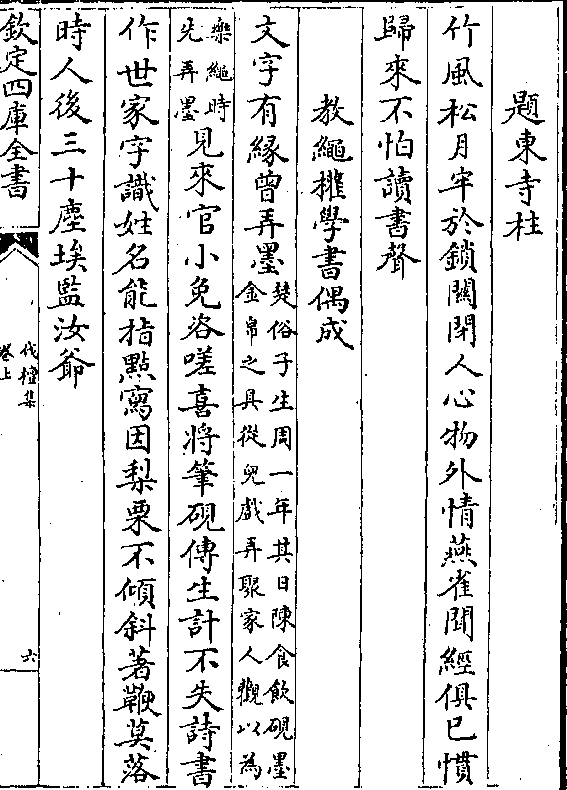 題東寺柱
竹風松月牢於鎖關閉人心物外情燕雀聞經俱已慣
歸來不怕讀書聲
教繩權學書偶成
文字有緣曾弄墨楚俗子生周一年其日陳食飲硯墨
金帛之具從兒戲弄聚家人觀以為
樂繩時
先弄墨見來官小免咨嗟喜將筆硯傳生計不失詩書
作世家字識姓名能指點寫因梨栗不傾斜著鞭莫落
時人後三十塵埃監汝爺
欽定四庫全書
伐檀集
卷上
六